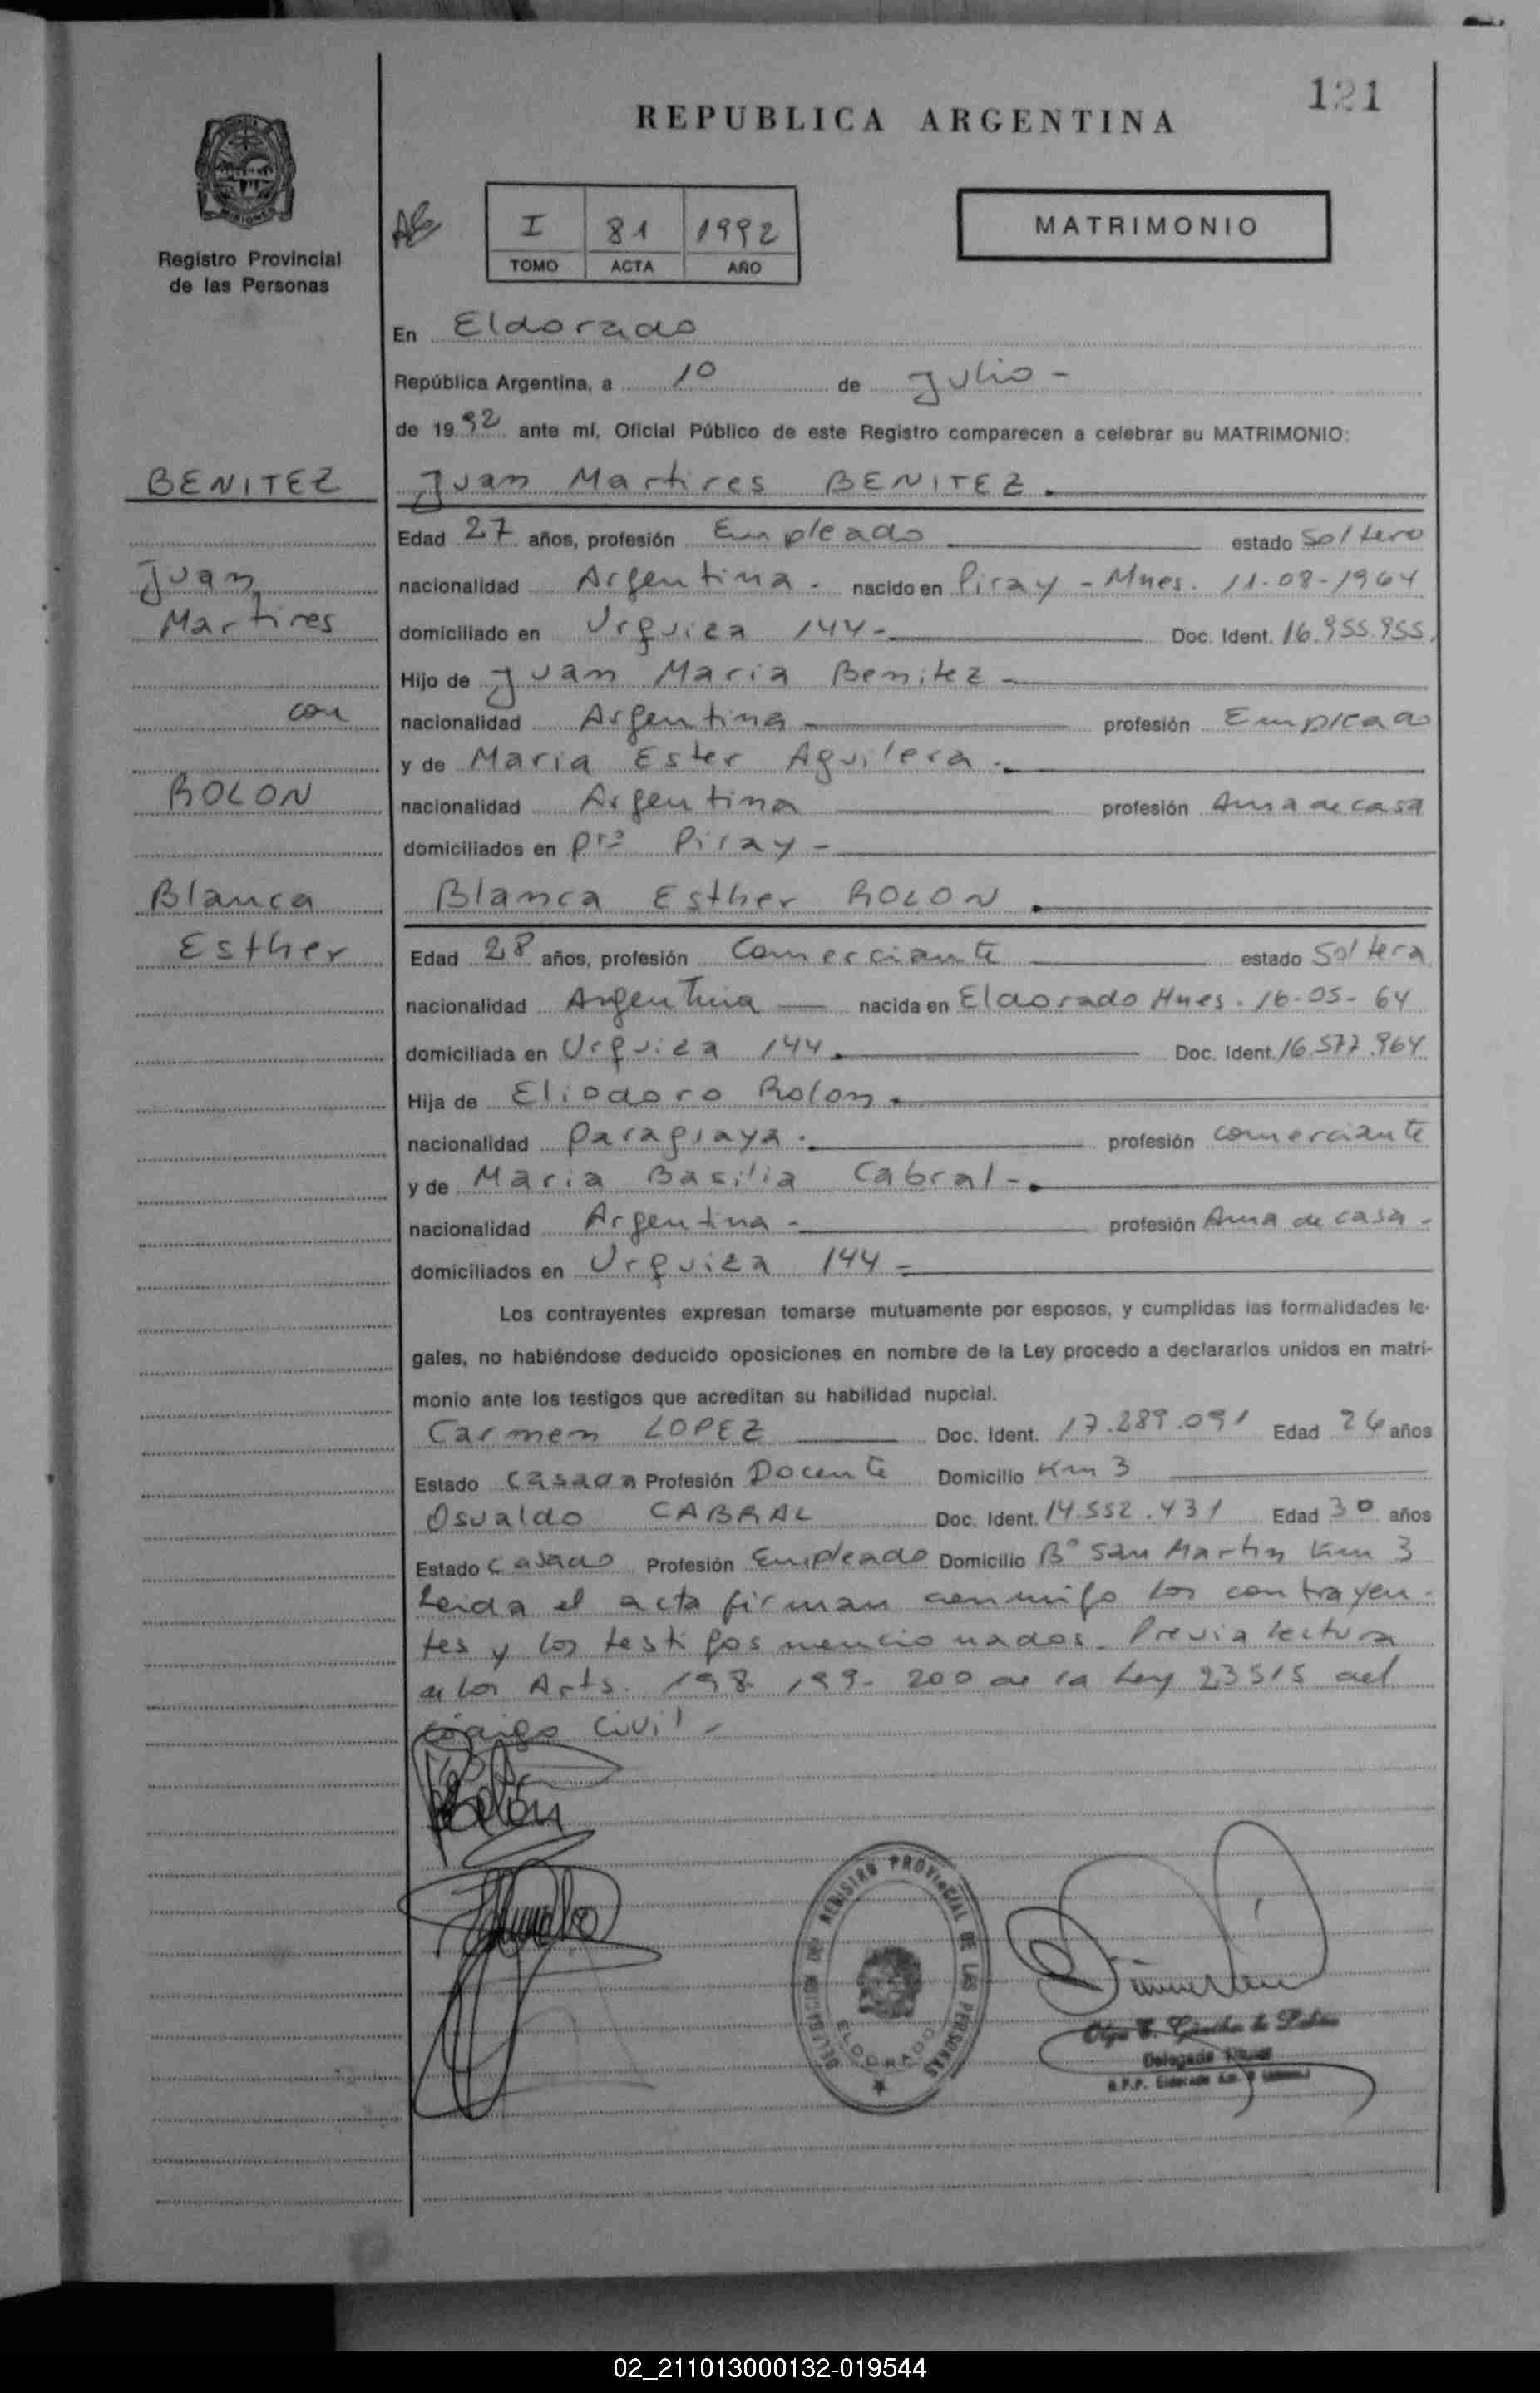 121
REPUBLICA ARGENTINA
Registro Provincial
de las Personas
I 81 1992
TOMO ACTA AÑO
MATRIMONIO
En Eldorado
República Argentina, a 10 de Julio -
de 1992 ante mí, Oficial Público de este Registro comparecen a celebrar su MATRIMONIO:
BENITEZ
Juan Martires BENITEZ.
Edad 27 años, profesión Empleado estado Soltero
Juan
nacionalidad Argentina - nacido en Piray - Mnes. 11-08-1964
Martires
domiciliado en Urquiza 144 - Doc. Ident. 16.955.955.
Hijo de Juan Maria Benitez -
con
nacionalidad Argentina profesión Empleado
y de Maria Ester Aguilera.
ROLON
nacionalidad Argentina profesión Ama de casa
domiciliados en Pto Piray -
Blanca
Blanca Esther ROLON.
Esther
Edad 28 años, profesión Comerciante estado Soltera
nacionalidad Argentina nacida en Eldorado Mnes. 16-05-64
domiciliada en Urquiza 144. Doc. Ident. 16.577.964
Hija de Eliodoro Rolon.
nacionalidad Paraguaya. profesión comerciante
y de Maria Basilia Cabral -.
nacionalidad Argentina - profesión Ama de casa -
domiciliados en Urquiza 144 -
Los contrayentes expresan tomarse mutuamente por esposos, y cumplidas las formalidades le-
gales, no habiéndose deducido oposiciones en nombre de la Ley procedo a declararlos unidos en matri-
monio ante los testigos que acreditan su habilidad nupcial.
Carmen LOPEZ Doc. Ident. 17.289.091 Edad 26 años
Estado Casada Profesión Docente Domicilio Km 3
Osvaldo CABRAL Doc. Ident. 14.552.431 Edad 30 años
Estado Casado Profesión Empleado Domicilio B° San Martin Km 3
Leida el acta firman conmigo los contrayen-
tes y los testigos mencionados. Previa lectura
de los Arts. 198 199- 200 de la Ley 23515 del
Código Civil -
Rolón
DELEGACION DEL REGISTRO PROVINCIAL DE LAS PERSONAS
ELDORADO
Olga E. de
Delegada
R.P.P. Eldorado Km.
02_211013000132-019544